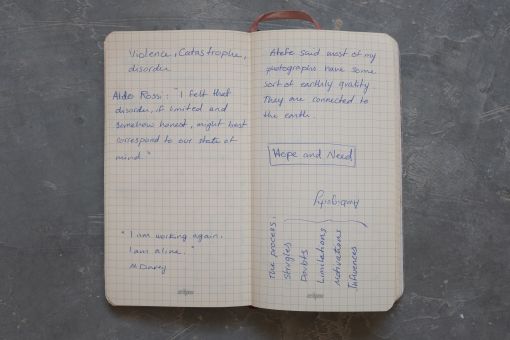 Violence, Catastrophe,
disorder
Aldo Rossi: "I felt that
disorder, if limited and
somehow honest, might best
correspond to our state of
mind."
"I am working again.
I am alive."
M Darcy
said most of my
photographs have some
sort of earthly quality
They are connected to
the earth.
Hope and Need
Ambiguity
The process:
Struggles
Doubts
Limitations
Motivations
Influences